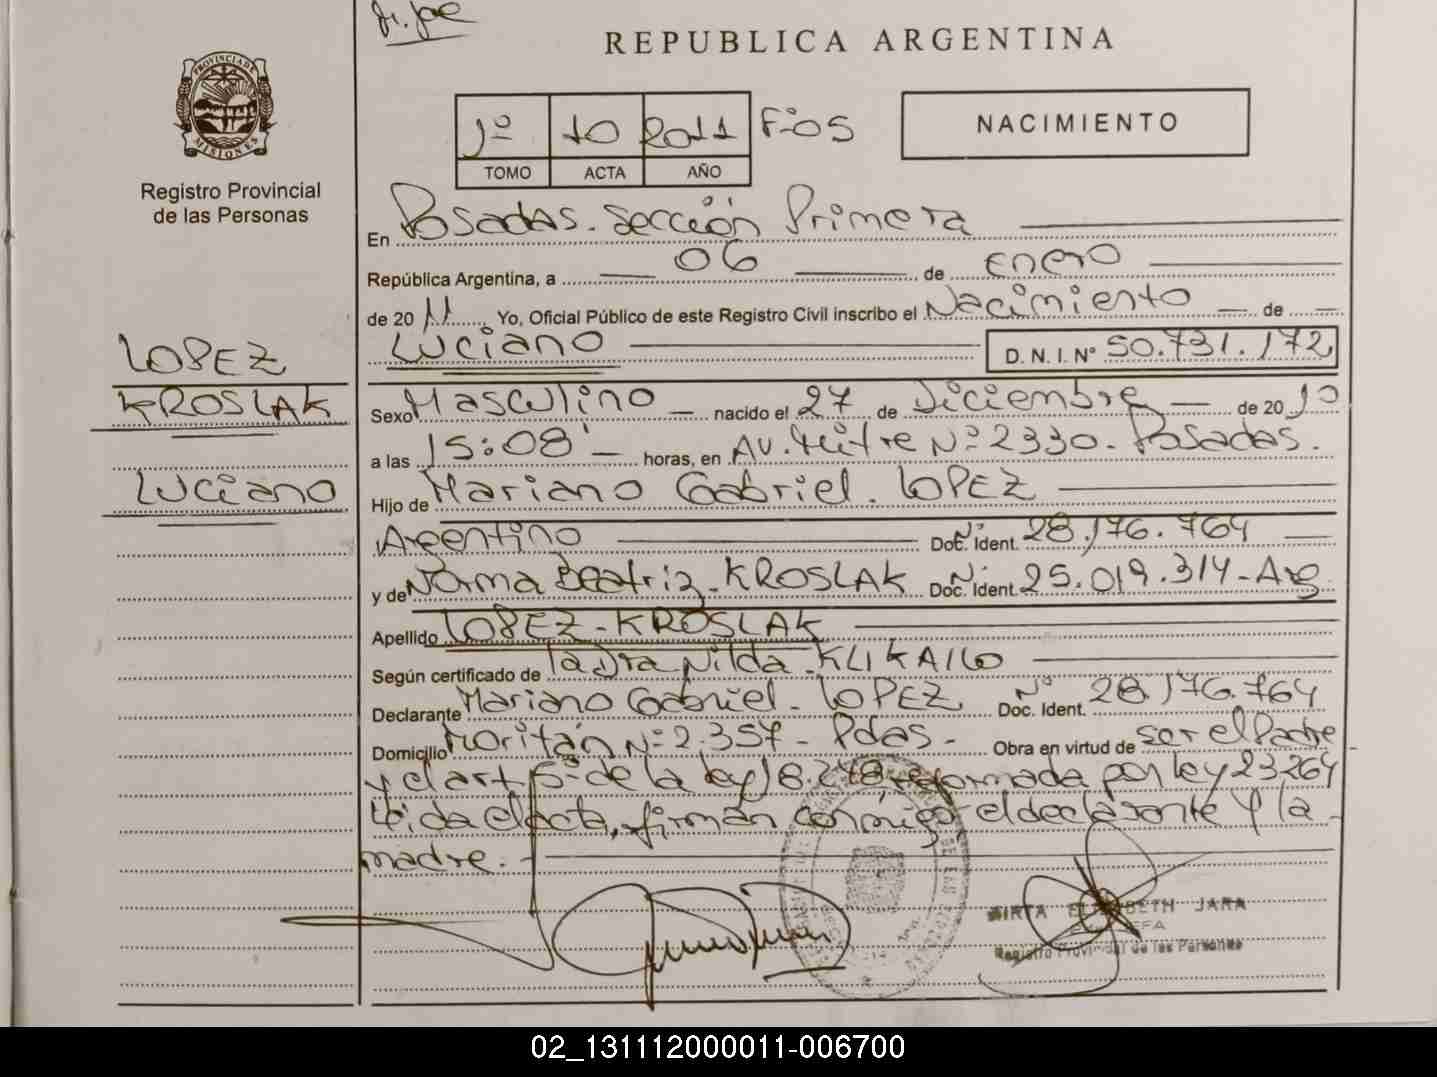 REPUBLICA ARGENTINA
PROVINCIA DE MISIONES
Registro Provincial
de las Personas
1º 10 2011 Fº05
TOMO ACTA AÑO
NACIMIENTO
En Posadas. Sección Primera
República Argentina, a 06 de enero
de 2011 Yo, Oficial Público de este Registro Civil inscribo el Nacimiento de
Luciano D.N.I. Nº 50.731.172
LOPEZ
KROSLAK
Luciano
Sexo Masculino nacido el 27 de Diciembre de 2010
a las 15:08' horas, en Av. Mitre Nº 2330. Posadas.
Hijo de Mariano Gabriel. LOPEZ
Argentino Doc. Ident. Nº 28.176.764
y de Norma Beatriz. KROSLAK Doc. Ident. Nº 25.019.314-Arg.
Apellido LOPEZ-KROSLAK
Según certificado de la Dra Nilda. KLIKAILO
Declarante Mariano Gabriel. LOPEZ Doc. Ident. Nº 28.176.764
Domicilio Moritán Nº 2.357 - Pdas - Obra en virtud de ser el Padre
y el art 5º de la ley 18.248 reformada por ley 23264
Leida el acta, firman conmigo el declarante y la
madre.-
MIRTA ELIZABETH JARA
JEFA
Registro Provincial de las Personas
02_131112000011-006700